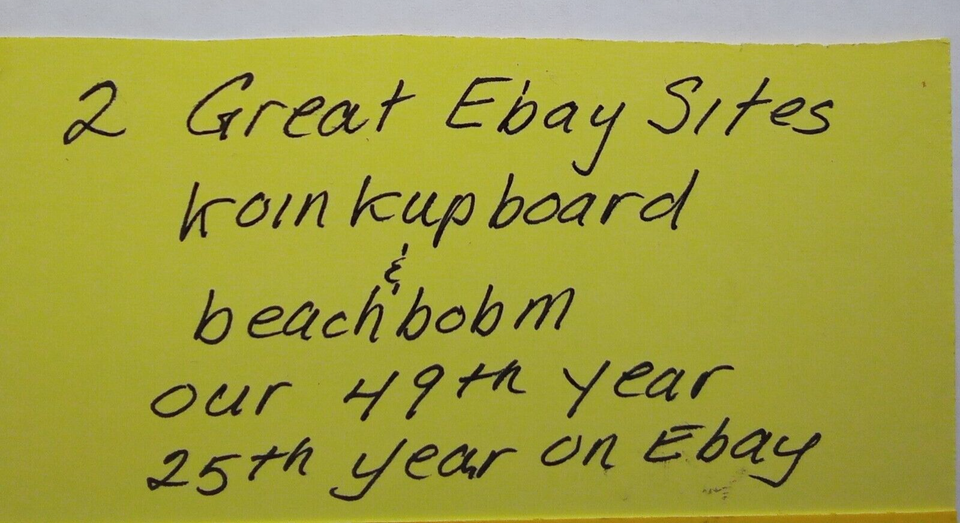 2 Great Ebay Sites
koinkupboard
&
beachbobm
our 49th year
25th year on Ebay